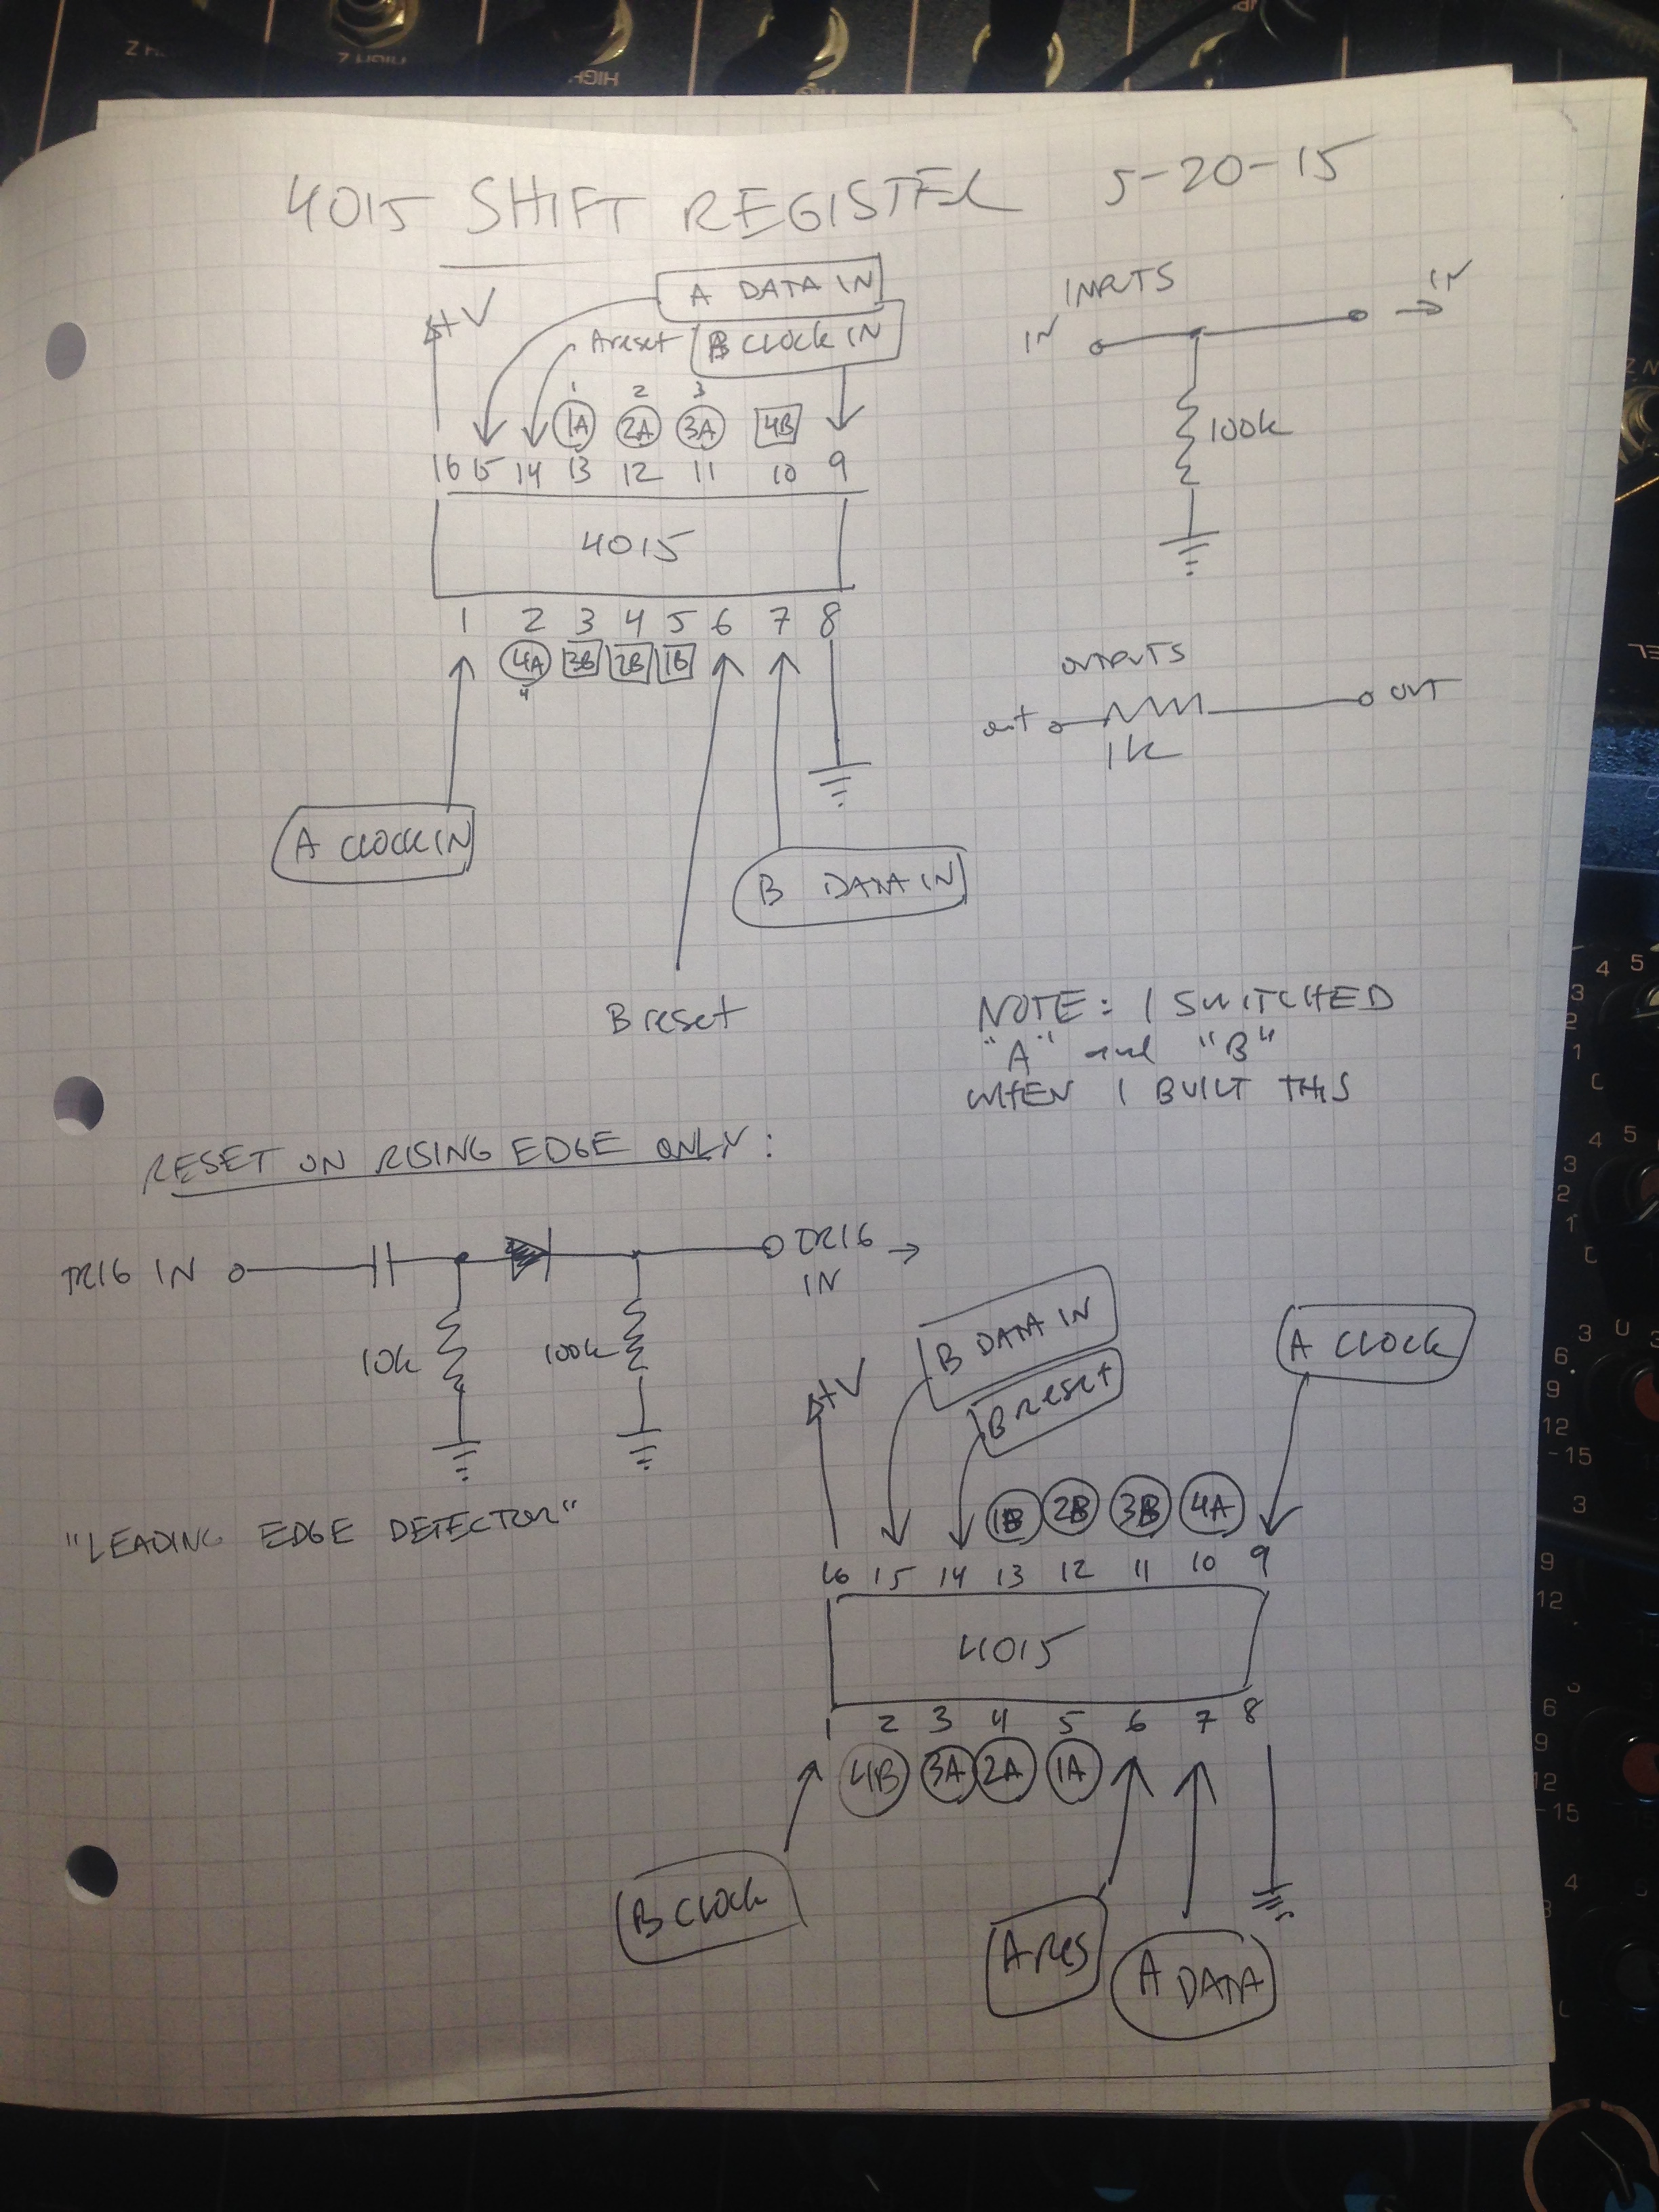 4015 SHIFT REGISTER 5-20-15
+V
A DATA IN
A reset
B CLOCK IN
1 2 3
1A 2A 3A 4B
16 15 14 13 12 11 10 9
4015
1 2 3 4 5 6 7 8
4A 3B 2B 1B
4
A CLOCK IN
B DATA IN
B reset
INPUTS
IN
IN
100k
OUTPUTS
out
OUT
1k
NOTE: I SWITCHED
"A" and "B"
WHEN I BUILT THIS
RESET ON RISING EDGE ONLY:
TRIG IN
TRIG
IN
10k 100k
"LEADING EDGE DETECTOR"
+V
B DATA IN
B reset
A CLOCK
1B 2B 3B 4A
16 15 14 13 12 11 10 9
4015
1 2 3 4 5 6 7 8
4B 3A 2A 1A
B CLOCK
A RES
A DATA
HIGH
HIGH
Z HIGH
4 5
3
2
1
4 5
3
2
1
3
6
9
12
-15
3
9
12
6
9
12
-15
4